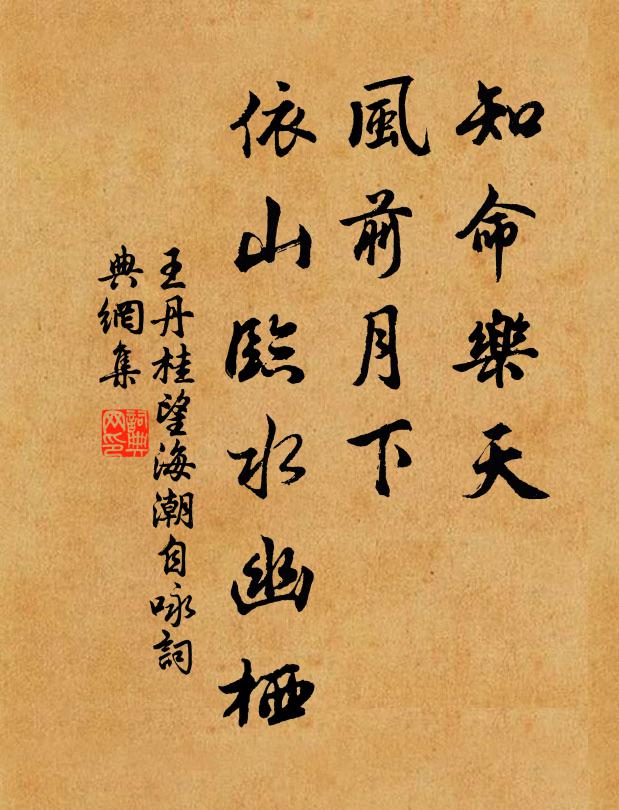 知命樂天
風前月下
依山臨水幽栖
王丹桂望海潮自咏詞
典網集
詞典
网印